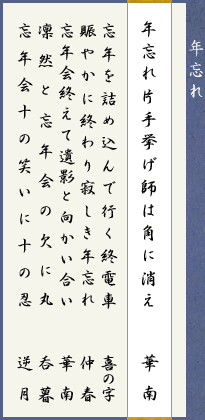 年忘れ
年忘れ片手挙げ師は角に消え 華南
忘年を詰め込んで行く終電車 喜の字
賑やかに終わり寂しき年忘れ 仲春
忘年会終えて遺影と向かい合い 華南
凛然と忘年会の欠に丸 呑暮
忘年会十の笑いに十の忍 逆月